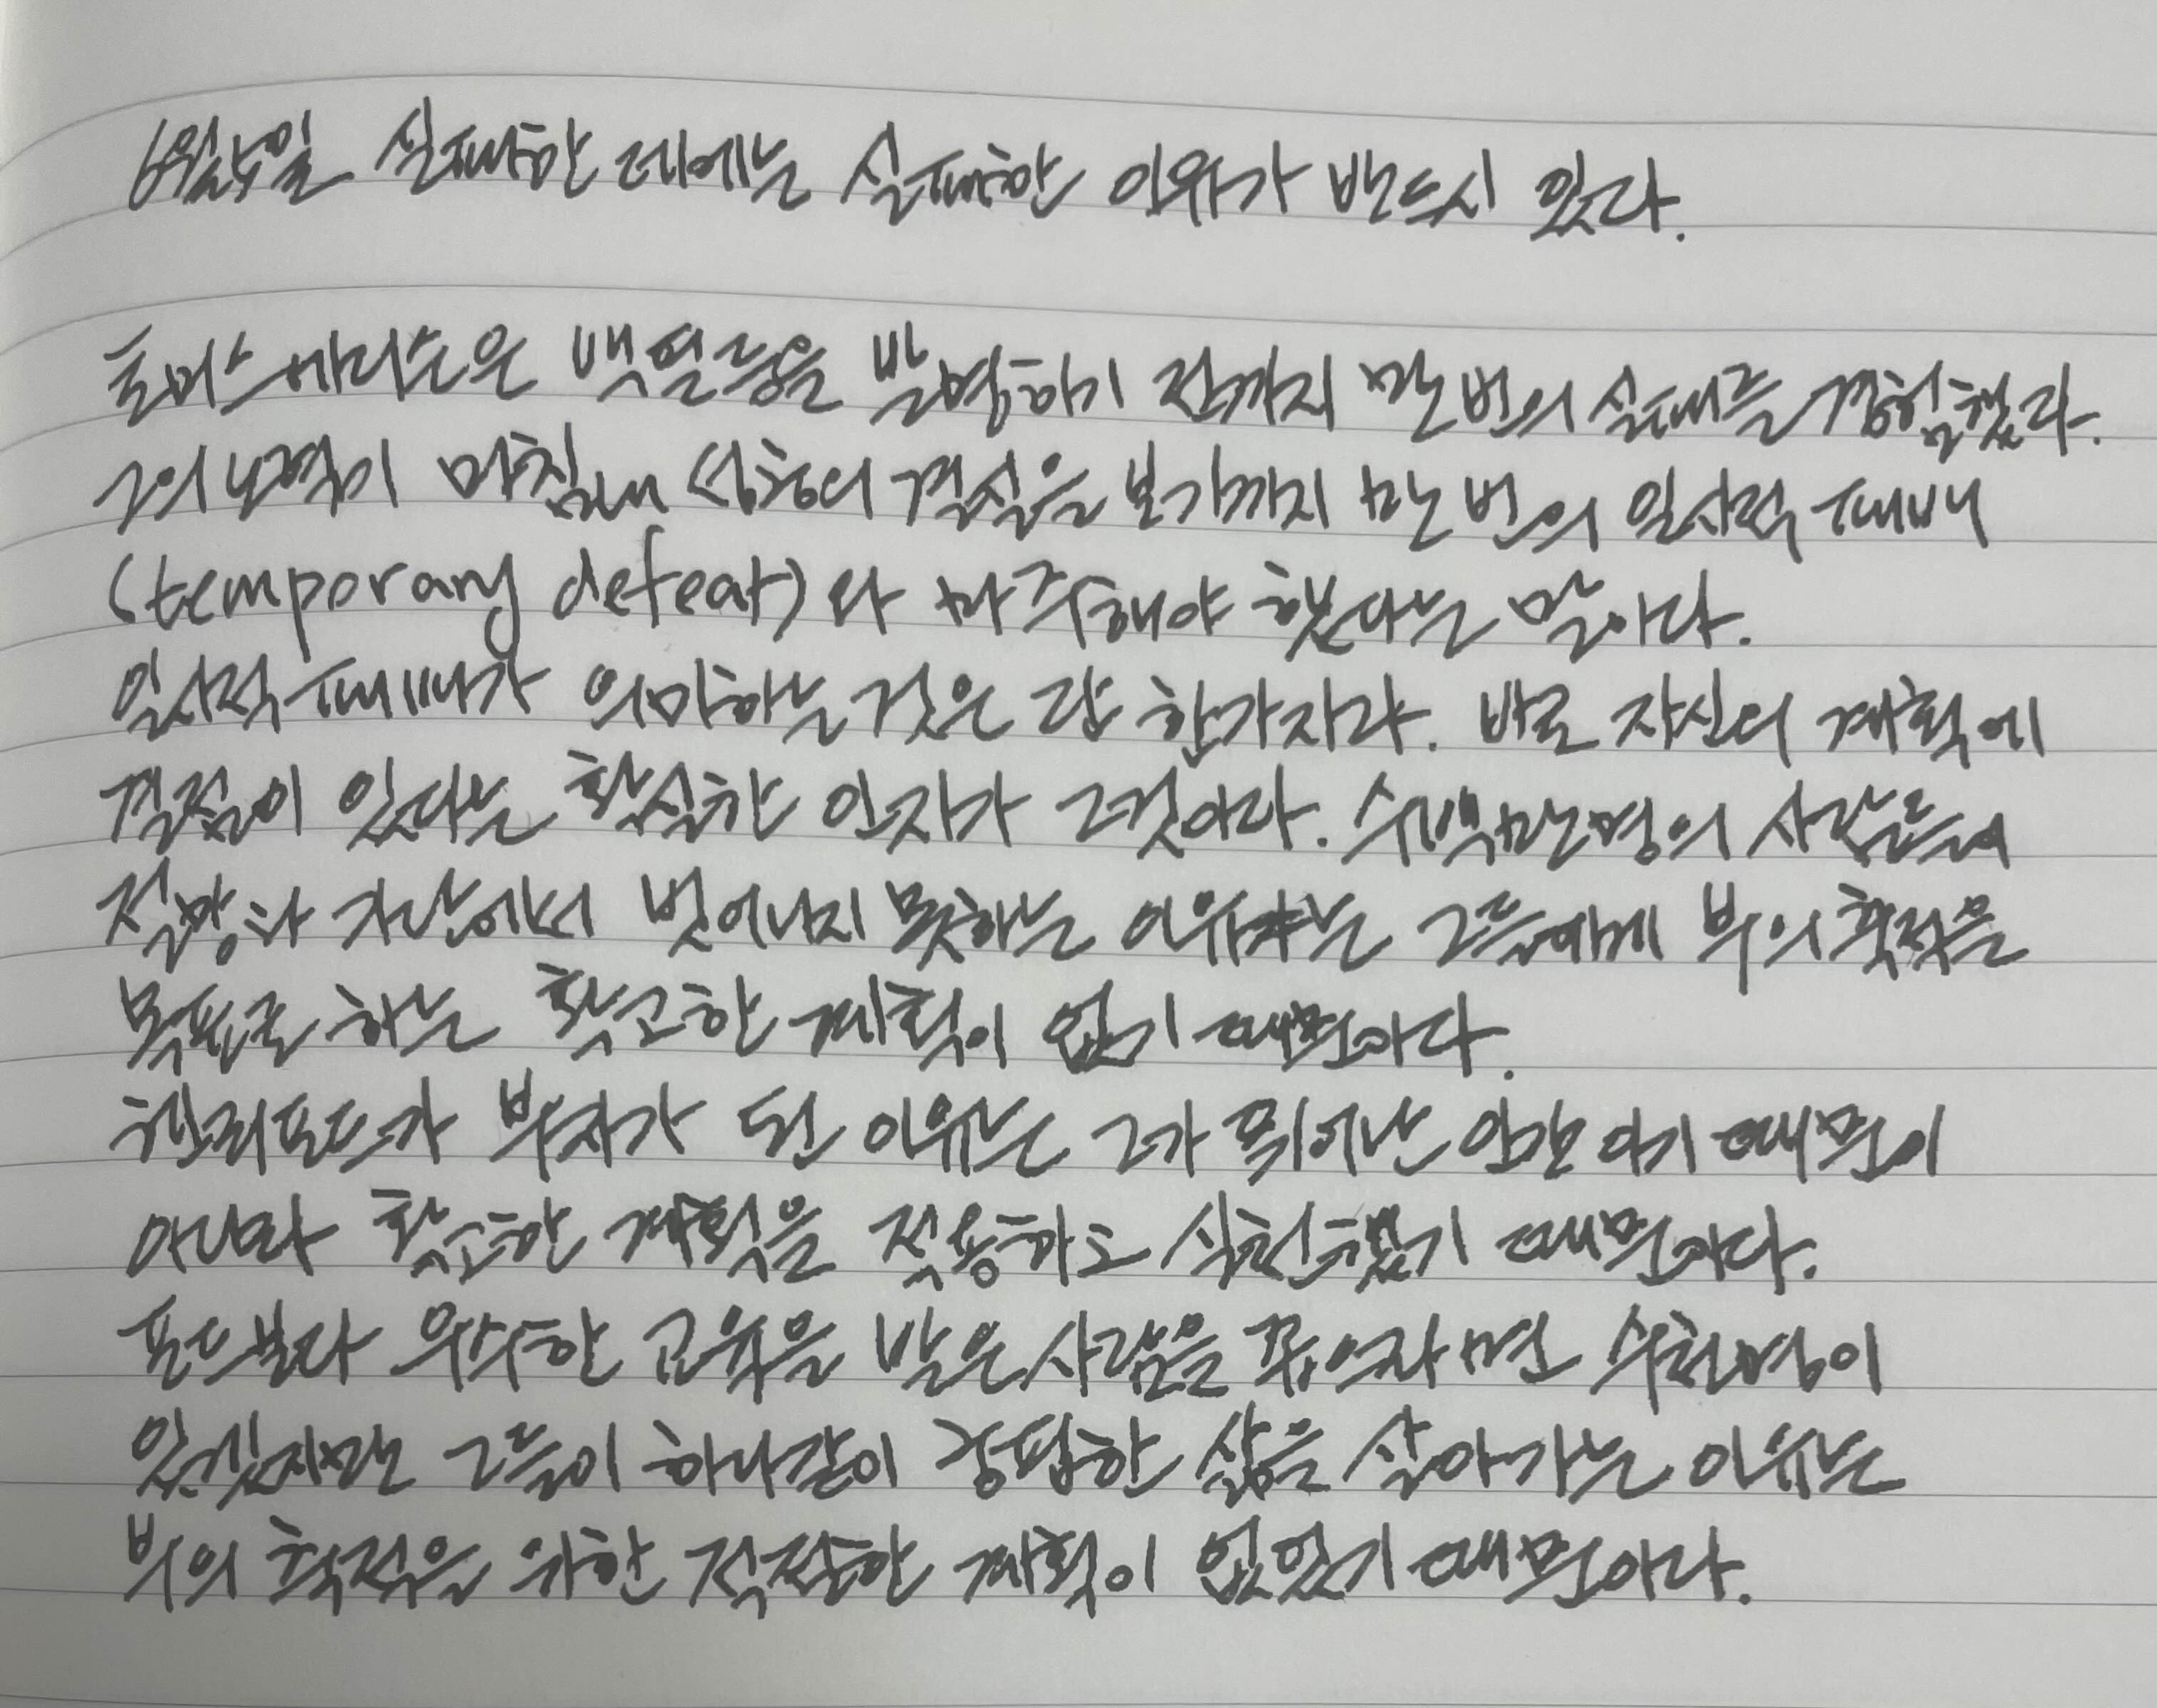 실패한 데에는 실패한 이유가 반드시 있다.
토머스 에디슨은 백열등을 발명하기 전까지 만 번의 실패를 경험했다.
그의 노력이 마침내 성공의 결실을 보기까지 만 번의 일시적 패배
(temporary defeat)와 마주해야 했다는 말이다.
일시적 패배가 의미하는 것은 단 한가지다. 바로 자신의 계획에
결점이 있다는 확실한 인지가 그것이다. 수백만명의 사람들이
절망과 가난에서 벗어나지 못하는 이유는 그들에게 부의 축적을
목표로 하는 확고한 계획이 없기 때문이다.
헨리포드가 부자가 된 이유는 그가 뛰어난 때문이
아니라 확고한 계획을 적용하고 실천했기 때문이다.
포드보다 우수한 교육을 받은 사람을 수천명이
있겠지만 그들이 하나같이 궁핍한 삶을 살아가는 이유는
부의 축적을 위한 적절한 계획이 없었기 때문이다.